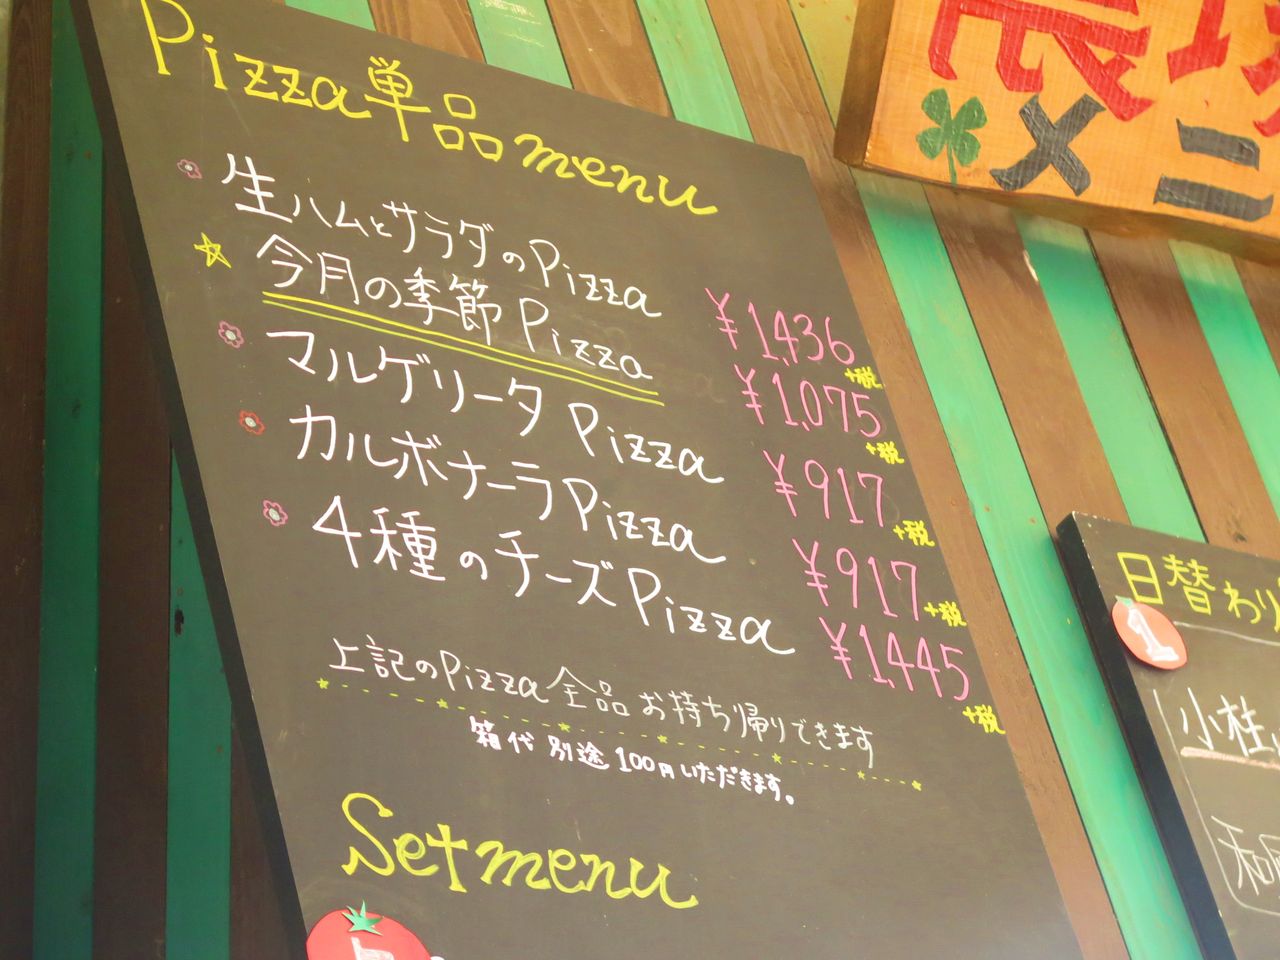 Pizza単品menu
生ハムとサラダのPizza ¥1,436 +税
今月の季節Pizza ¥1,075 +税
マルゲリータPizza ¥917 +税
カルボナーラPizza ¥917 +税
4種のチーズPizza ¥1,445 +税
上記のPizza全品お持ち帰りできます
箱代 別途100円いただきます。
Setmenu
メニ
日替わり
1
小柱